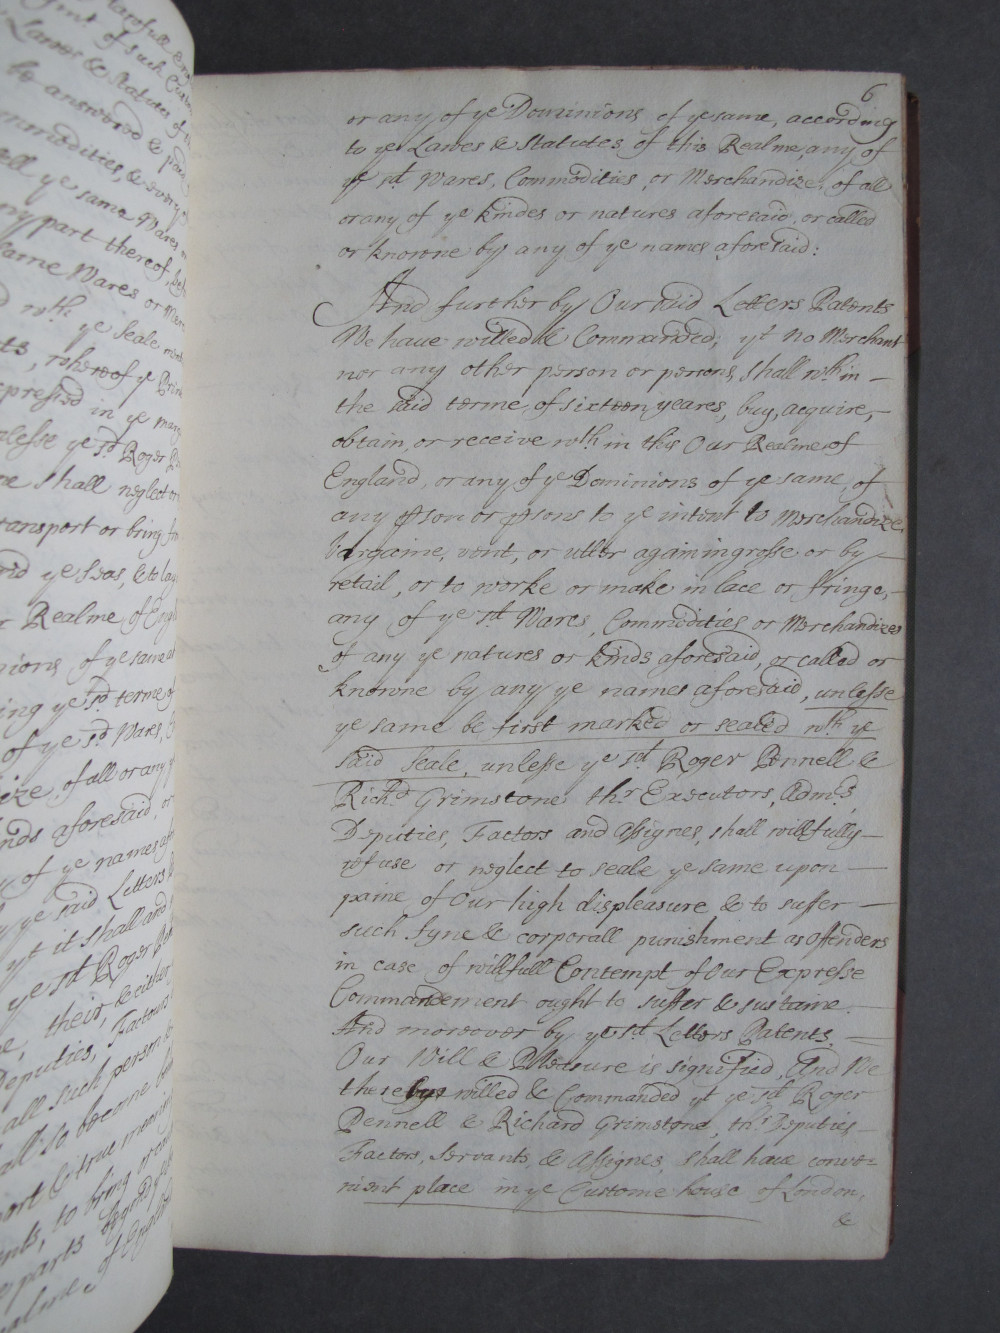 Carefull
of such
Lawes & Statutes of
be answered & paid
Commodities, & every
all ye same Wares
any part thereof
same Wares or Mer
wth ye Seale
whereof ye
pressed in ye
unlesse ye sd Roger
shall neglect or
transport or bring
ye seas, & to
Realme of
of ye same
ye sd terme of
of ye sd Wares,
of all or any
aforesaid, or
of ye names
ye said Letters
yt it shall and
ye sd Roger
their, & either
Deputies, Factors
all such person
all so become
& true meaning
to bring or
parts beyond
of England
6
or any of ye Dominions of ye same, according
to ye Lawes & Statutes of this Realme, any of
ye sd Wares, Commodities, or Merchandize, of all
or any of ye kindes or natures aforesaid, or called
or knowne by any of ye names aforesaid:
And further by Our said Letters Patents
We have willed & Commanded, yt no Merchant
nor any other person or persons, shall wth in –
the said terme, of sixteen yeares, buy, acquire, –
obtain, or receive wth in this Our Realme of
England, or any of ye Dominions of ye same of
any pson or psons to ye intent to Merchandize,
bargaine, vent, or utter again in grosse or by –
retail, or to worke or make in lace or fringe, –
any of ye sd Wares, Commodities or Merchandizes
of any ye natures or kinds aforesaid, or called or
knowne by any ye names aforesaid, unlesse
ye same be first marked or sealed wth ye
said Seale, unlesse ye sd Roger Pennell &
Richd Grimstone thr Executors, Admrs,
Deputies, Factors and Assignes, shall willfully –
refuse or neglect to seale ye same upon –
paine of Our high displeasure & to suffer –
such fyne & corporall punishment as Offenders
in case of willfull Contempt of Our Expresse
Commandement ought to suffer & sustaine. –
And moreover by ye sd Letters Patents, –
Our Will & Pleasure is signified, And We
thereby willed & Commanded yt ye sd Roger
Pennell & Richard Grimstone, thr Deputies –
Factors, Servants, & Assignes, shall have conve-
nient place in ye Custome house of London,
&